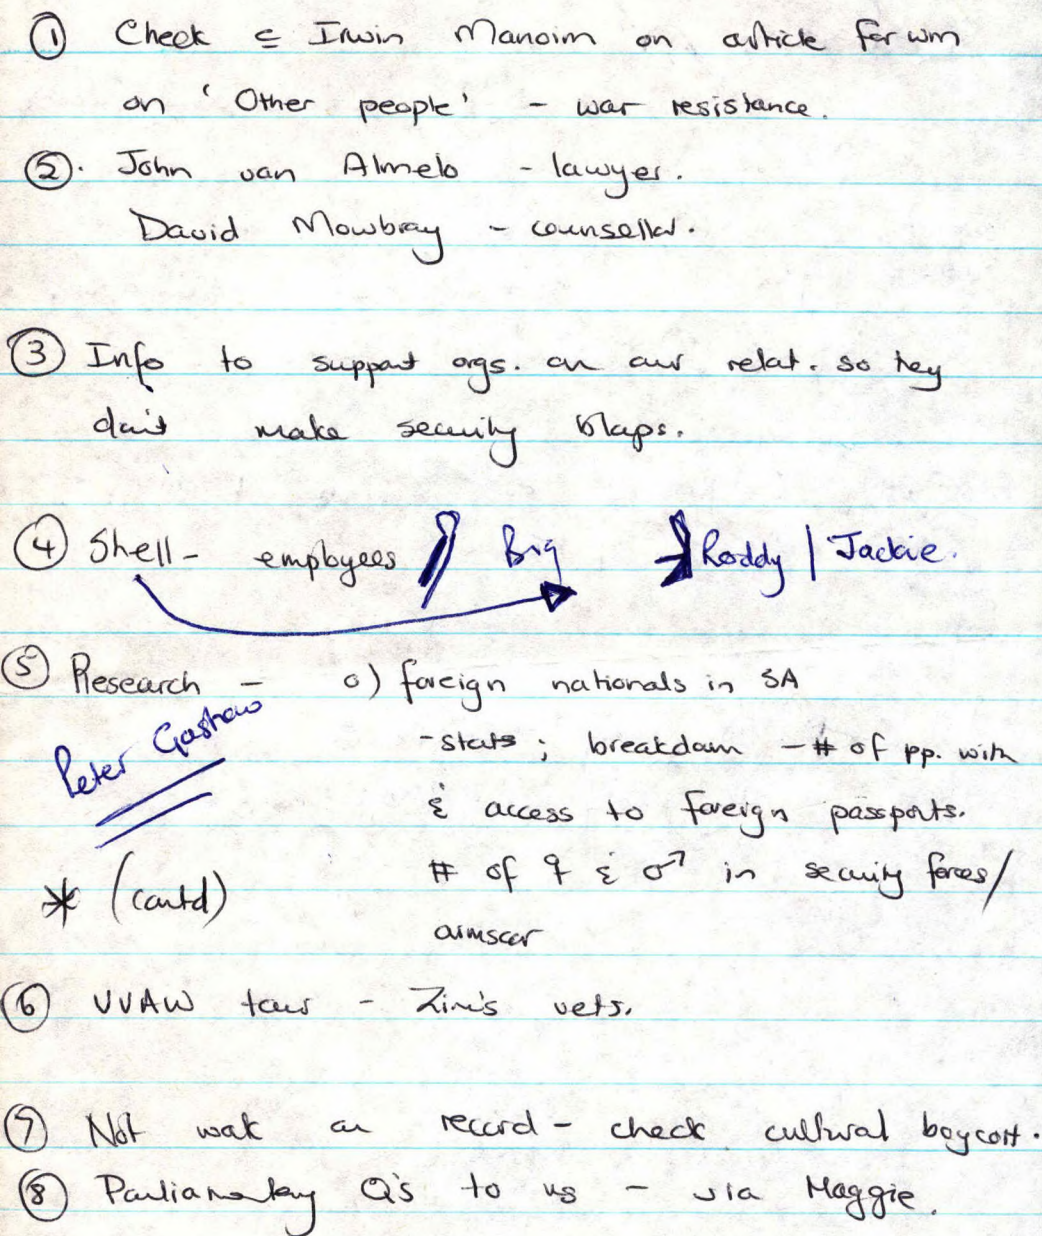 ① Check c Irwin Manoim on article for wm
on 'Other people' - war resistance.
②. John van Almelo - lawyer.
David Mowbray - counsellor.
③ Info to support orgs. on our relat. so they
don't make security blaps.
④ Shell - employees // Big → Roddy | Jackie.
⑤ Research - a) foreign nationals in SA
Peter Gastrow
- stats ; breakdown - # of pp. with
& access to foreign passports.
# of ♀ & ♂ in security forces/
* (contd)
armscor
⑥ VVAW tour - Zim's vets.
⑦ Not work on record - check cultural boycott.
⑧ Parliamentary Q's to us - via Maggie.